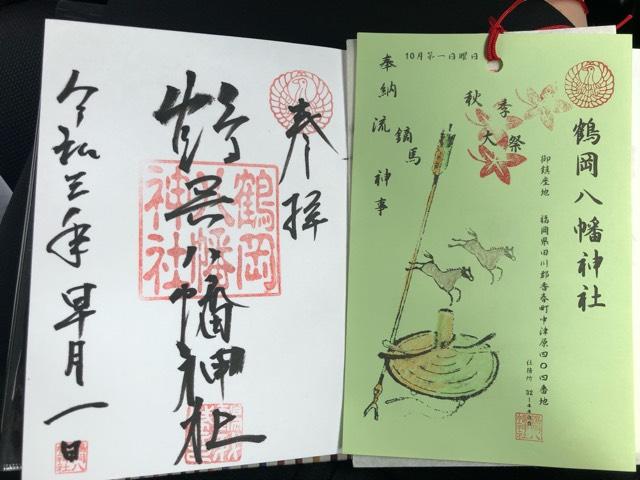 奉拝
鶴岡八幡神社
鶴岡
八幡
神社
令和三年早月一日
10月第一日曜日
鶴岡八幡神社
御鎮座地 福岡県田川郡香春町中津原四〇四番地
秋季大祭
奉納流鏑馬神事